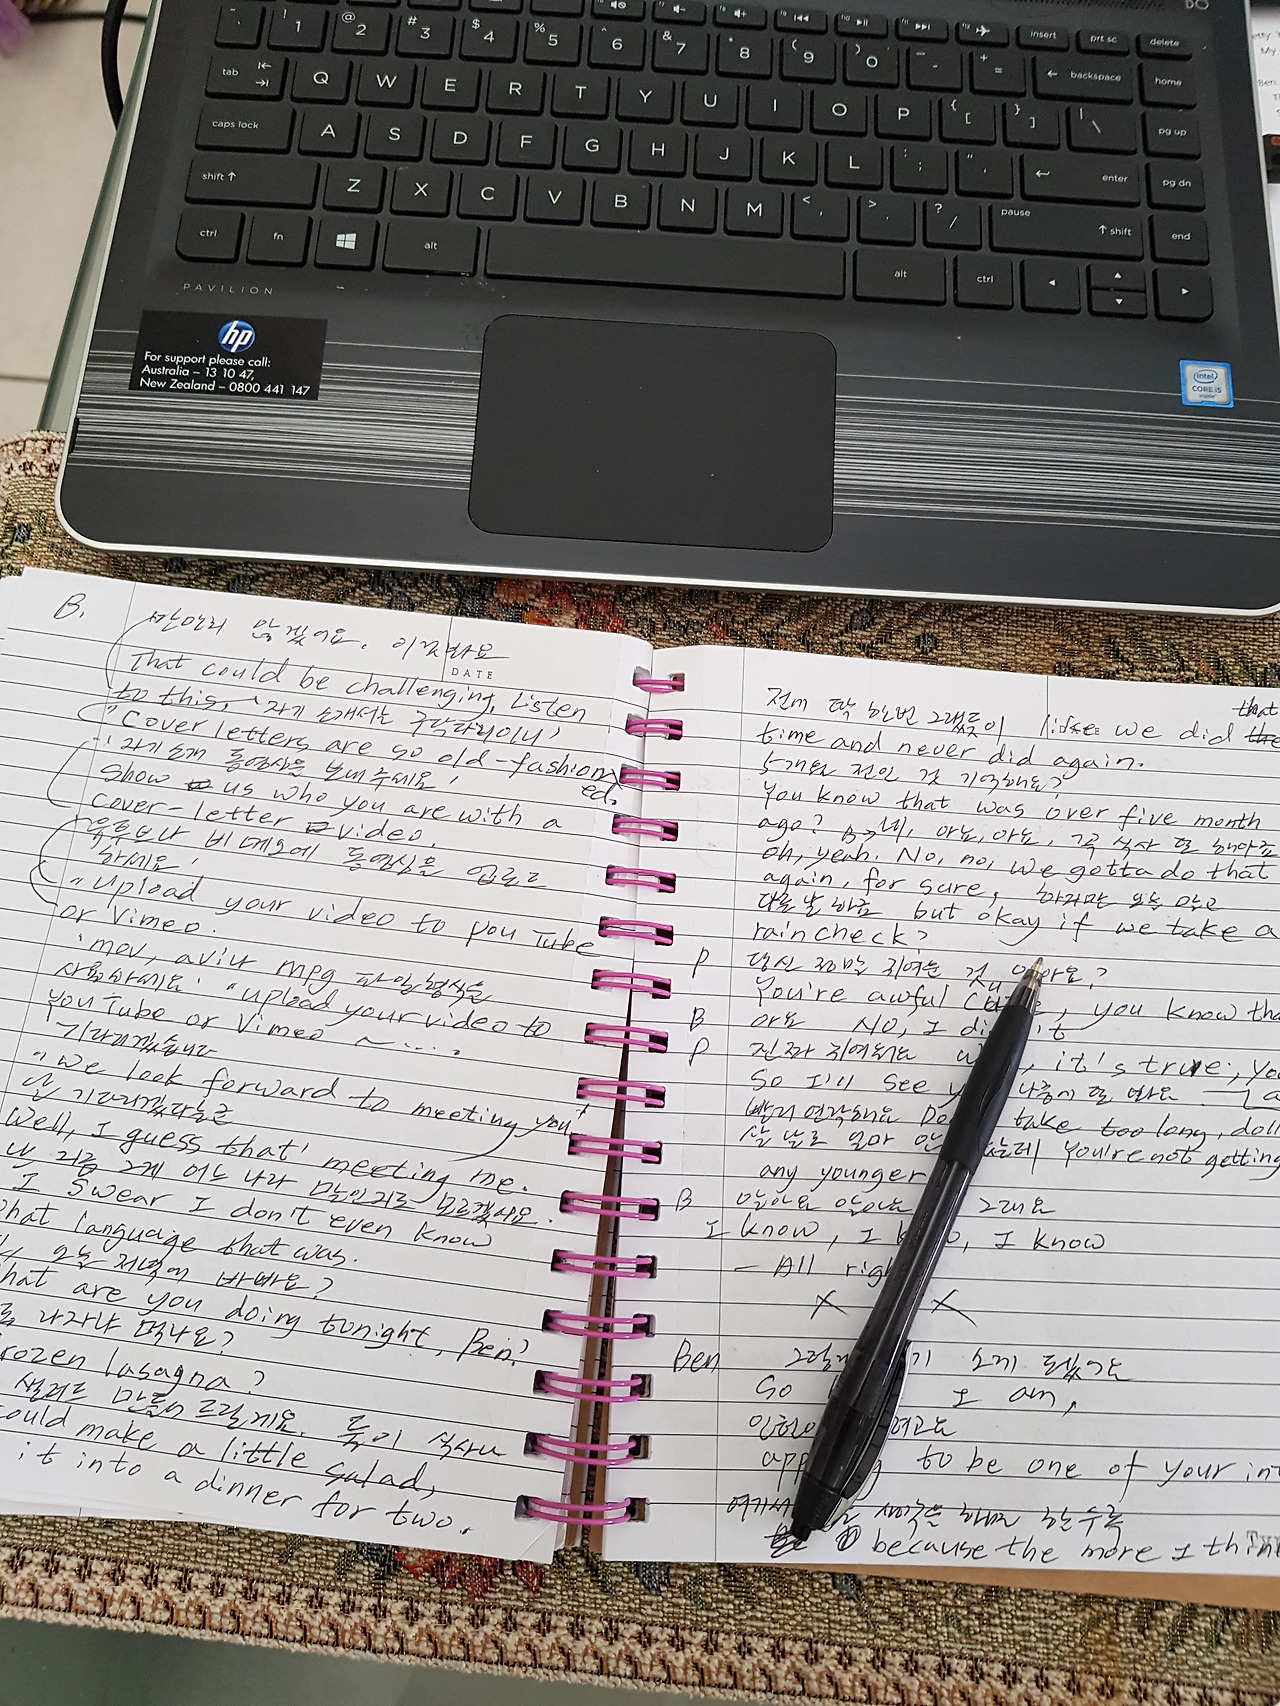 ~ ` ! 1 @ 2 # 3 $ 4 % 5 ^ 6 & 7 * 8 ( 9 ) 0 _ - + = ← backspace home
insert prt sc delete
tab Q W E R T Y U I O P { [ } ] | \ pg up
caps lock A S D F G H J K L : ; " ' ← enter pg dn
shift ↑ Z X C V B N M < , > . ? / pause ↑ shift end
ctrl fn alt alt ctrl
PAVILION
hp
For support please call:
Australia – 13 10 47,
New Zealand – 0800 441 147
intel
CORE i5
inside
DATE
B. 만만치 않겠어요. 이것봐요
That could be challenging, Listen
to this, '자기소개서는 구닥다리이니'
"Cover letters are so old-fashioned.
'자기소개 동영상을 보내주세요'
Show us who you are with a
cover-letter video,
유투브나 비메오에 동영상을 업로드
하세요'
"Upload your video to you Tube
or Vimeo.
'mov, avi, mpg 파일형식을
사용하세요' "upload your video to
YouTube or Vimeo ~ ....
기다리겠습니다
"We look forward to meeting you"
날 기다리겠다는군
Well, I guess that' meeting me.
난 지금 그게 어느 나라 말인지도 모르겠어요.
I swear I don't even know
what language that was.
오늘 저녁에 바빠요?
What are you doing tonight, Ben?
라자냐 먹나요?
Frozen lasagna?
샐러드 만들어 드릴게요. 둘이 식사
could make a little salad,
it into a dinner for two.
전에 딱 한번 그랬듯이 like we did that
time and never did again.
5개월 전인 것 기억해요?
You know that was over five month
ago? B→ 네, 아뇨, 아뇨, 그럼 식사 또 해야죠
Oh, yeah. No, no, we gotta do that
again, for sure, 하지만 오늘 말고
다음날 하죠 but okay if we take a
rain check?
P 당신 정말 귀여운 것 아요?
You're awful cute, you know tha
B 아뇨 No, I di t
P 진짜 귀여워요 , it's true, yo
So I'll see y 나중에 또 봐요
빨리 연락해요 Do take too long, doll
살 날도 얼마 안 는데 You're not getting
any younger
B 알아요 알아요 그래요
I know, I k o, I know
– All righ
X X
Ben 그렇게 기 오게 됐어요
So I am,
app g to be one of your int
여기서 생각을 하면 할수록
because the more I think